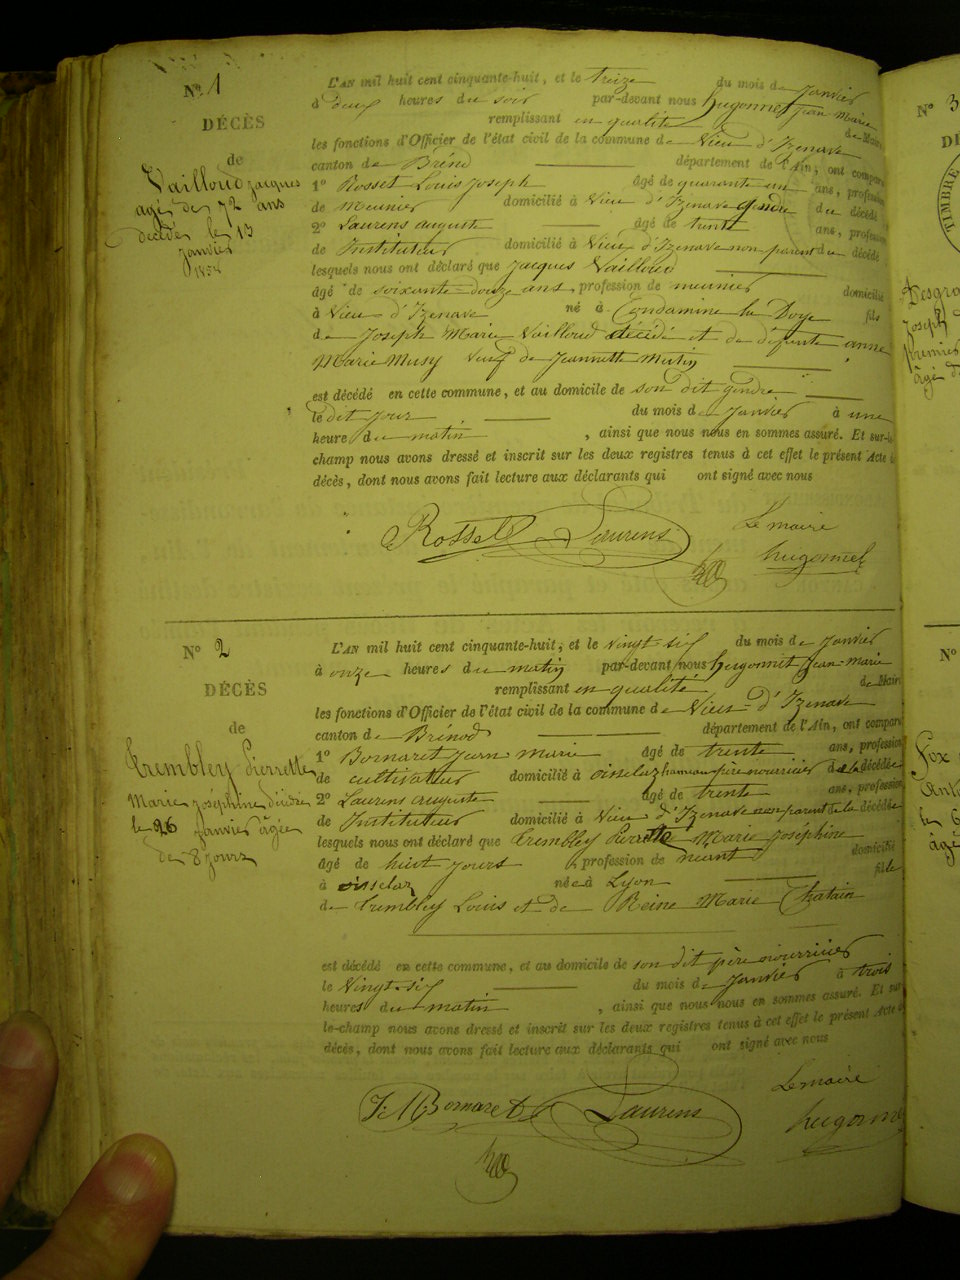 N° 1
DÉCÈS
de
Vailloud Jacques
agé de 72 ans
décédé le 13
janvier
1858
L'AN mil huit cent cinquante-huit, et le treize du mois de Janvier
à deux heures du soir par-devant nous hugonnet jean Marie
remplissant en qualité de Maire
les fonctions d'Officier de l'état civil de la commune de Vieu d'Izenave
canton de Brénod département de l'Ain, ont comparu
1° Rosset Louis Joseph âgé de quarante un ans, profession
de Meunier domicilié à Vieu d'Izenave gendre du décédé
2° Laurens auguste âgé de trente ans, profession
de Instituteur domicilié à Vieu d'Izenave non parent du décédé
lesquels nous ont déclaré que Jacques Vailloud
âgé de soixante-douze ans, profession de meunier domicilié
à Vieu-d'Izenave né à Condamine la Doye fils
de Joseph Marie Vailloud décédé et de défunte anne
Marie Musy veuf de Jeannette Mutin
est décédé en cette commune, et au domicile de son dit gendre
le dit jour du mois de Janvier à une
heure du matin , ainsi que nous nous en sommes assuré. Et sur-le-
champ nous avons dressé et inscrit sur les deux registres tenus à cet effet le présent Acte de
décès, dont nous avons fait lecture aux déclarants qui ont signé avec nous
Rosset Laurens Le maire
hugonnet
N° 2
DÉCÈS
de
Trembley Pierrette
Marie Joséphine décédée
le 26 Janvier âgée
de 8 jours
L'AN mil huit cent cinquante-huit, et le vingt-six du mois de Janvier
à onze heures du matin par-devant nous hugonnet Jean-marie
remplissant en qualité de Maire
les fonctions d'Officier de l'état civil de la commune de Vieu-d'Izenave
canton de Brénod département de l'Ain, ont comparu
1° Bornaret Jean marie âgé de trente ans, profession
de cultivateur domicilié à oisselaz hameau père nourricier de la décédée
2° Laurens auguste âgé de trente ans, profession
de Instituteur domicilié à Vieu d'Izenave non parent de la décédée
lesquels nous ont déclaré que Trembley Pierrette Marie Joséphine
âgé de huit jours , profession de néant domicilié
à oisselaz née à Lyon fille
de Trembley Louis et de Reine Marie Chatain
est décédé en cette commune, et au domicile de son dit père nourricier
le Vingt-six du mois de Janvier à trois
heures du matin , ainsi que nous nous en sommes assuré. Et sur
le-champ nous avons dressé et inscrit sur les deux registres tenus à cet effet le présent Acte
décès, dont nous avons fait lecture aux déclarants qui ont signé avec nous
J. M Bornaret Laurens Le maire
hugonnet
N° 3
TIMBRE
Joseph
premier
âgé de
N°
Fox
le 6
âgé